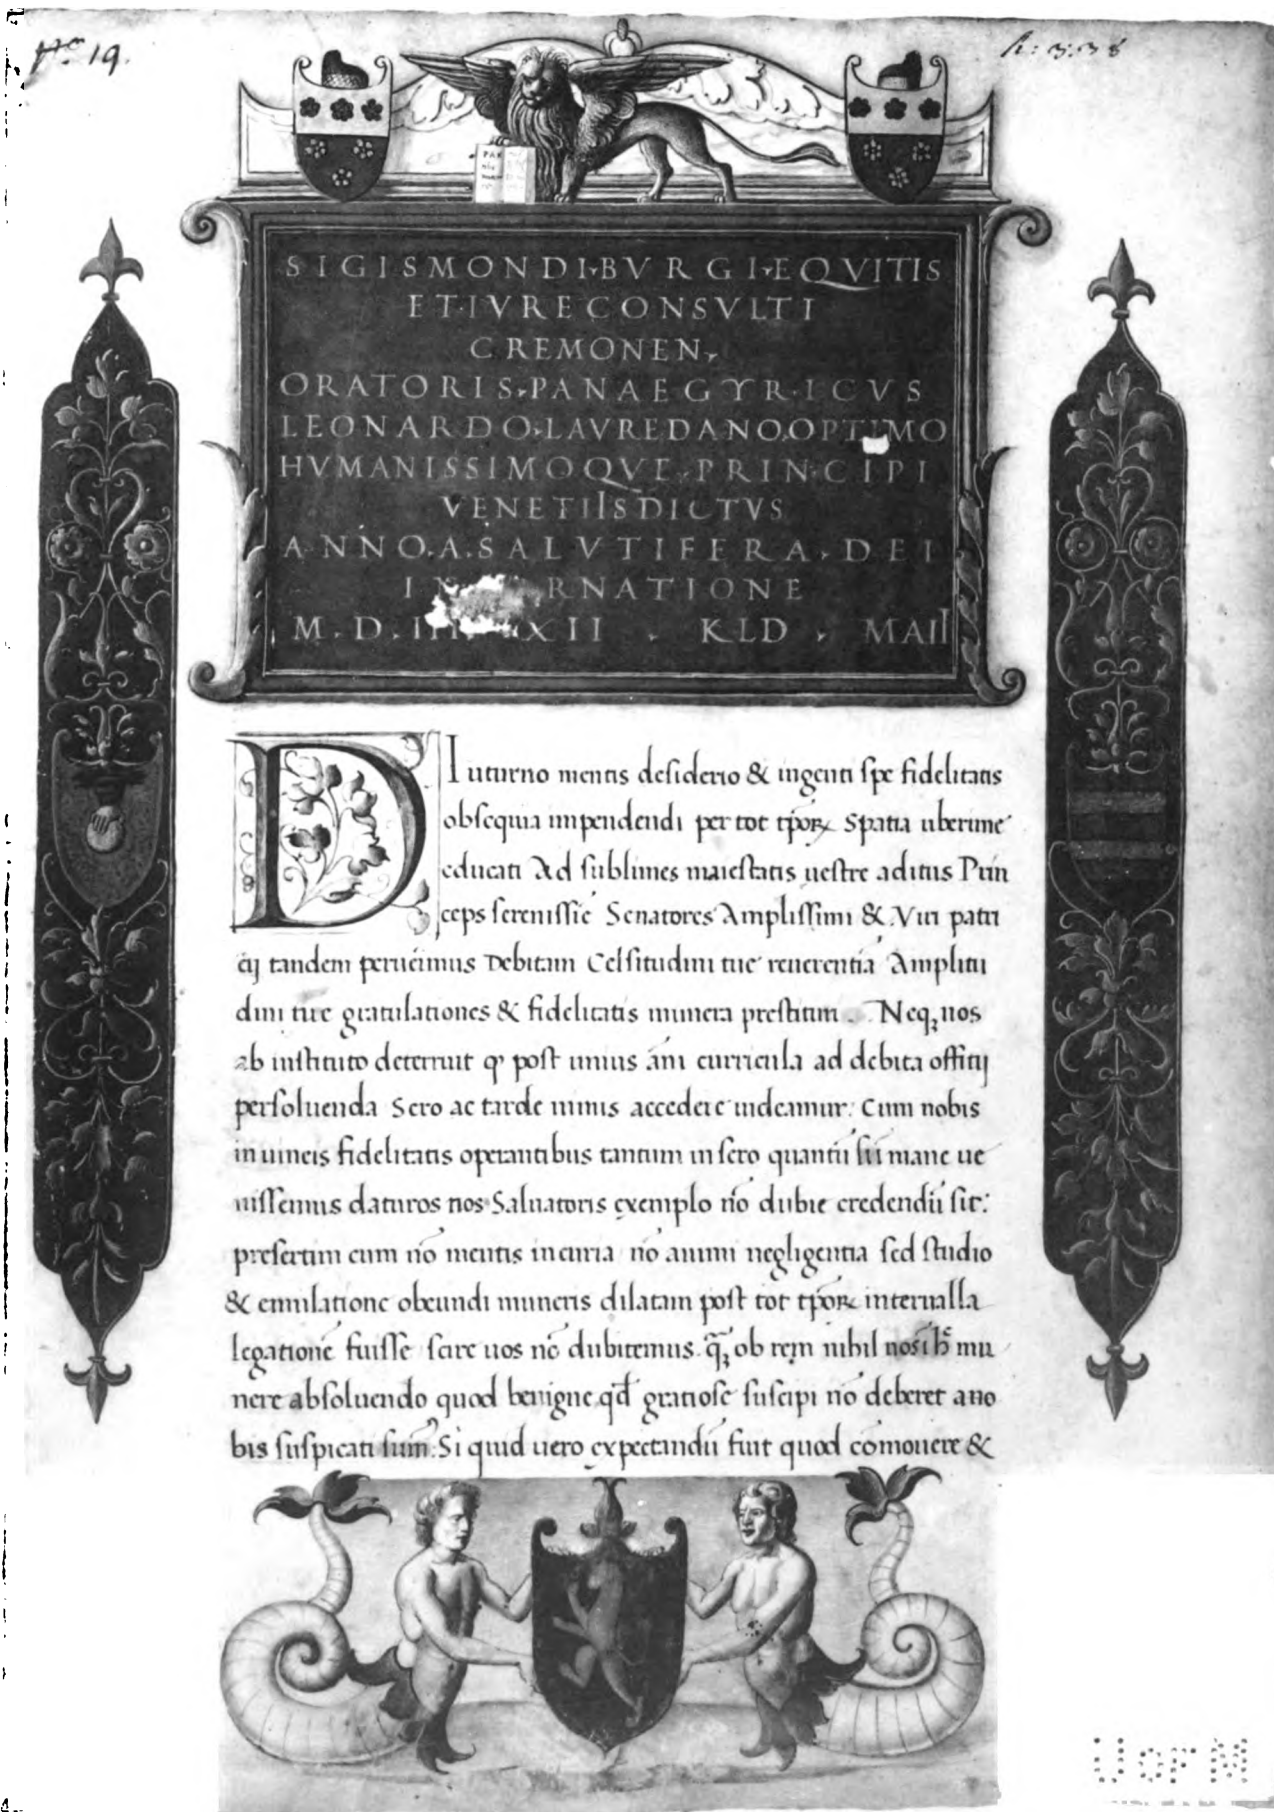 Nº 19.
SIGISMONDI BVRGI EQVITIS
ET·IVRECONSVLTI
CREMONEN
ORATORIS PANAEGYRICVS
LEONARDO LAVREDANO OPTIMO
HVMANISSIMOQVE PRINCIPI
VENETIIS DICTVS
ANNO A SALVTIFERA DEI
RNATIONE
M. D. XII KLD MAII
DIuturno mentis desiderio & ingenti spe fidelitatis
obsequia impendendi per tot tꝑoꝝ Spatia uberime
educati Ad sublimes maiestatis uestre aditus Prin
ceps serenissie Senatores Amplissimi & Viri patri
cij tandem peruēimus Debitam Celsitudini tue reuerentiā Amplitu
dini tue gratulationes & fidelitatis munera prestitum Neqꝫ nos
ab instituto deterruit qꝰ post unius āni curricula ad debita offitij
persoluenda Sero ac tarde nimis accedere uideamur: Cum nobis
in uineis fidelitatis operantibus tantum in sero quantū sii mane ue
nissemus daturos nos Saluatoris exemplo nō dubie credendū sit:
presertim cum nō mentis incuria nō animi negligentia sed studio
& emulatione obeundi muneris dilatam post tot tꝑoꝝ interualla
legationē fuisse scire uos nō dubitemus ob rem nihil mu
nere absoluendo quod benigne qd gratiose suscipi nō deberet a no
bis suspicati sum⁹: Si quid uero expectandū fuit quod cōmouere &
UOFM